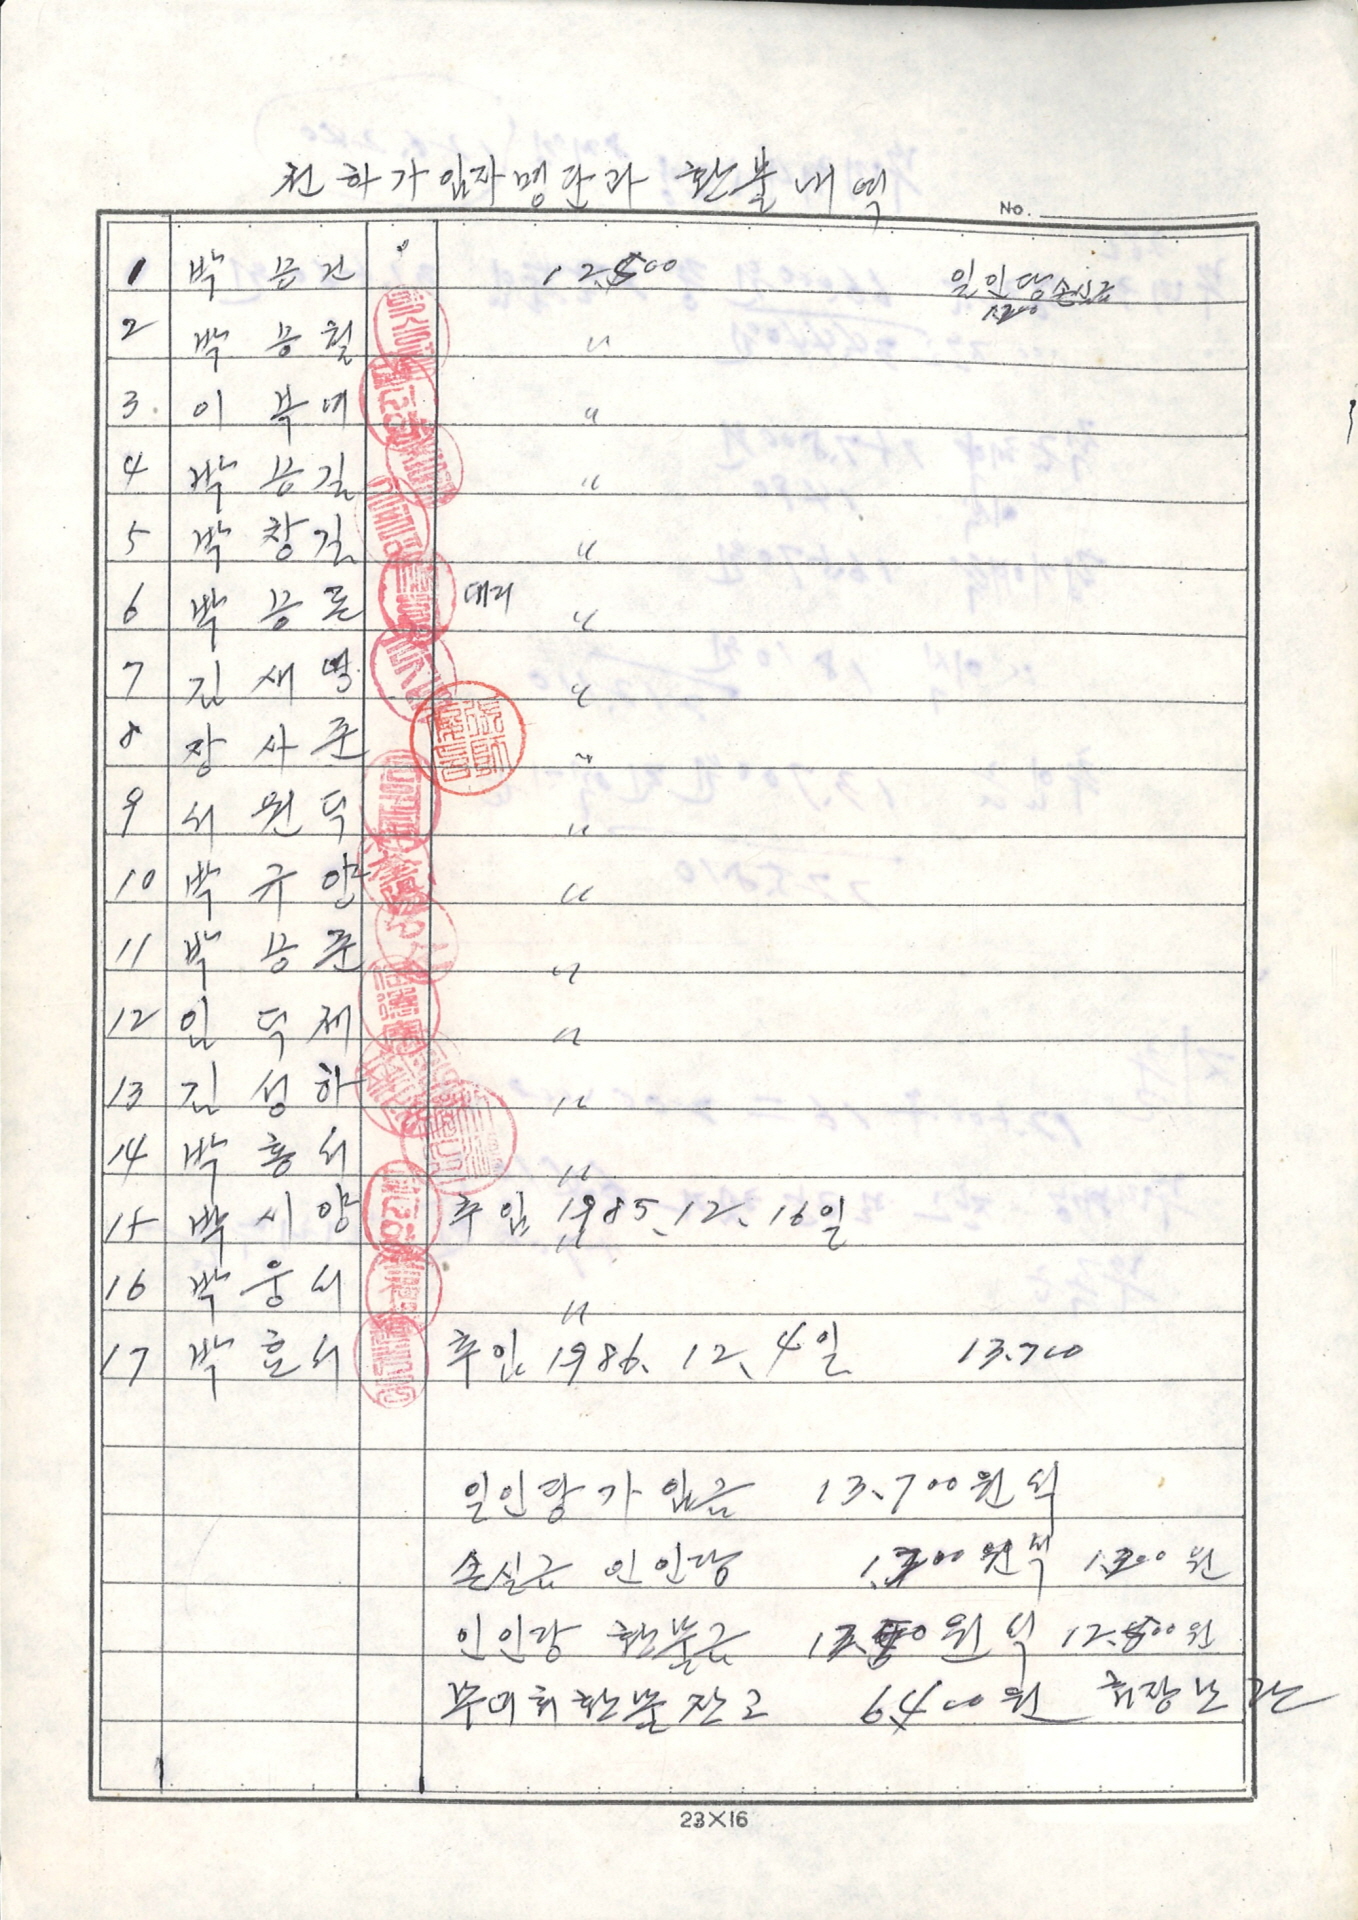 천하가입자명단과 환불내역
No.
1 박응건 12,500 일인당손실금 1,200
2 박응철 〃
3 이부예 〃
4 박응길 〃
5 박창길 〃
6 박응돈 대리 〃
7 김새명 〃
8 장사준 〃
9 서원덕 〃
10 박규양 〃
11 박응준 〃
12 임덕제 〃
13 김성하 〃
14 박홍서 〃
15 박시양 추입 1985. 12. 16일 〃
16 박웅서 〃
17 박효서 추입 1986. 12. 4일 13.700
일인당가입금 13.700원식
손실금 인인당 원식 1,200원
인인당 환불금 원식 12.500원
부여회환불잔고 6400원 회장보관
23×16